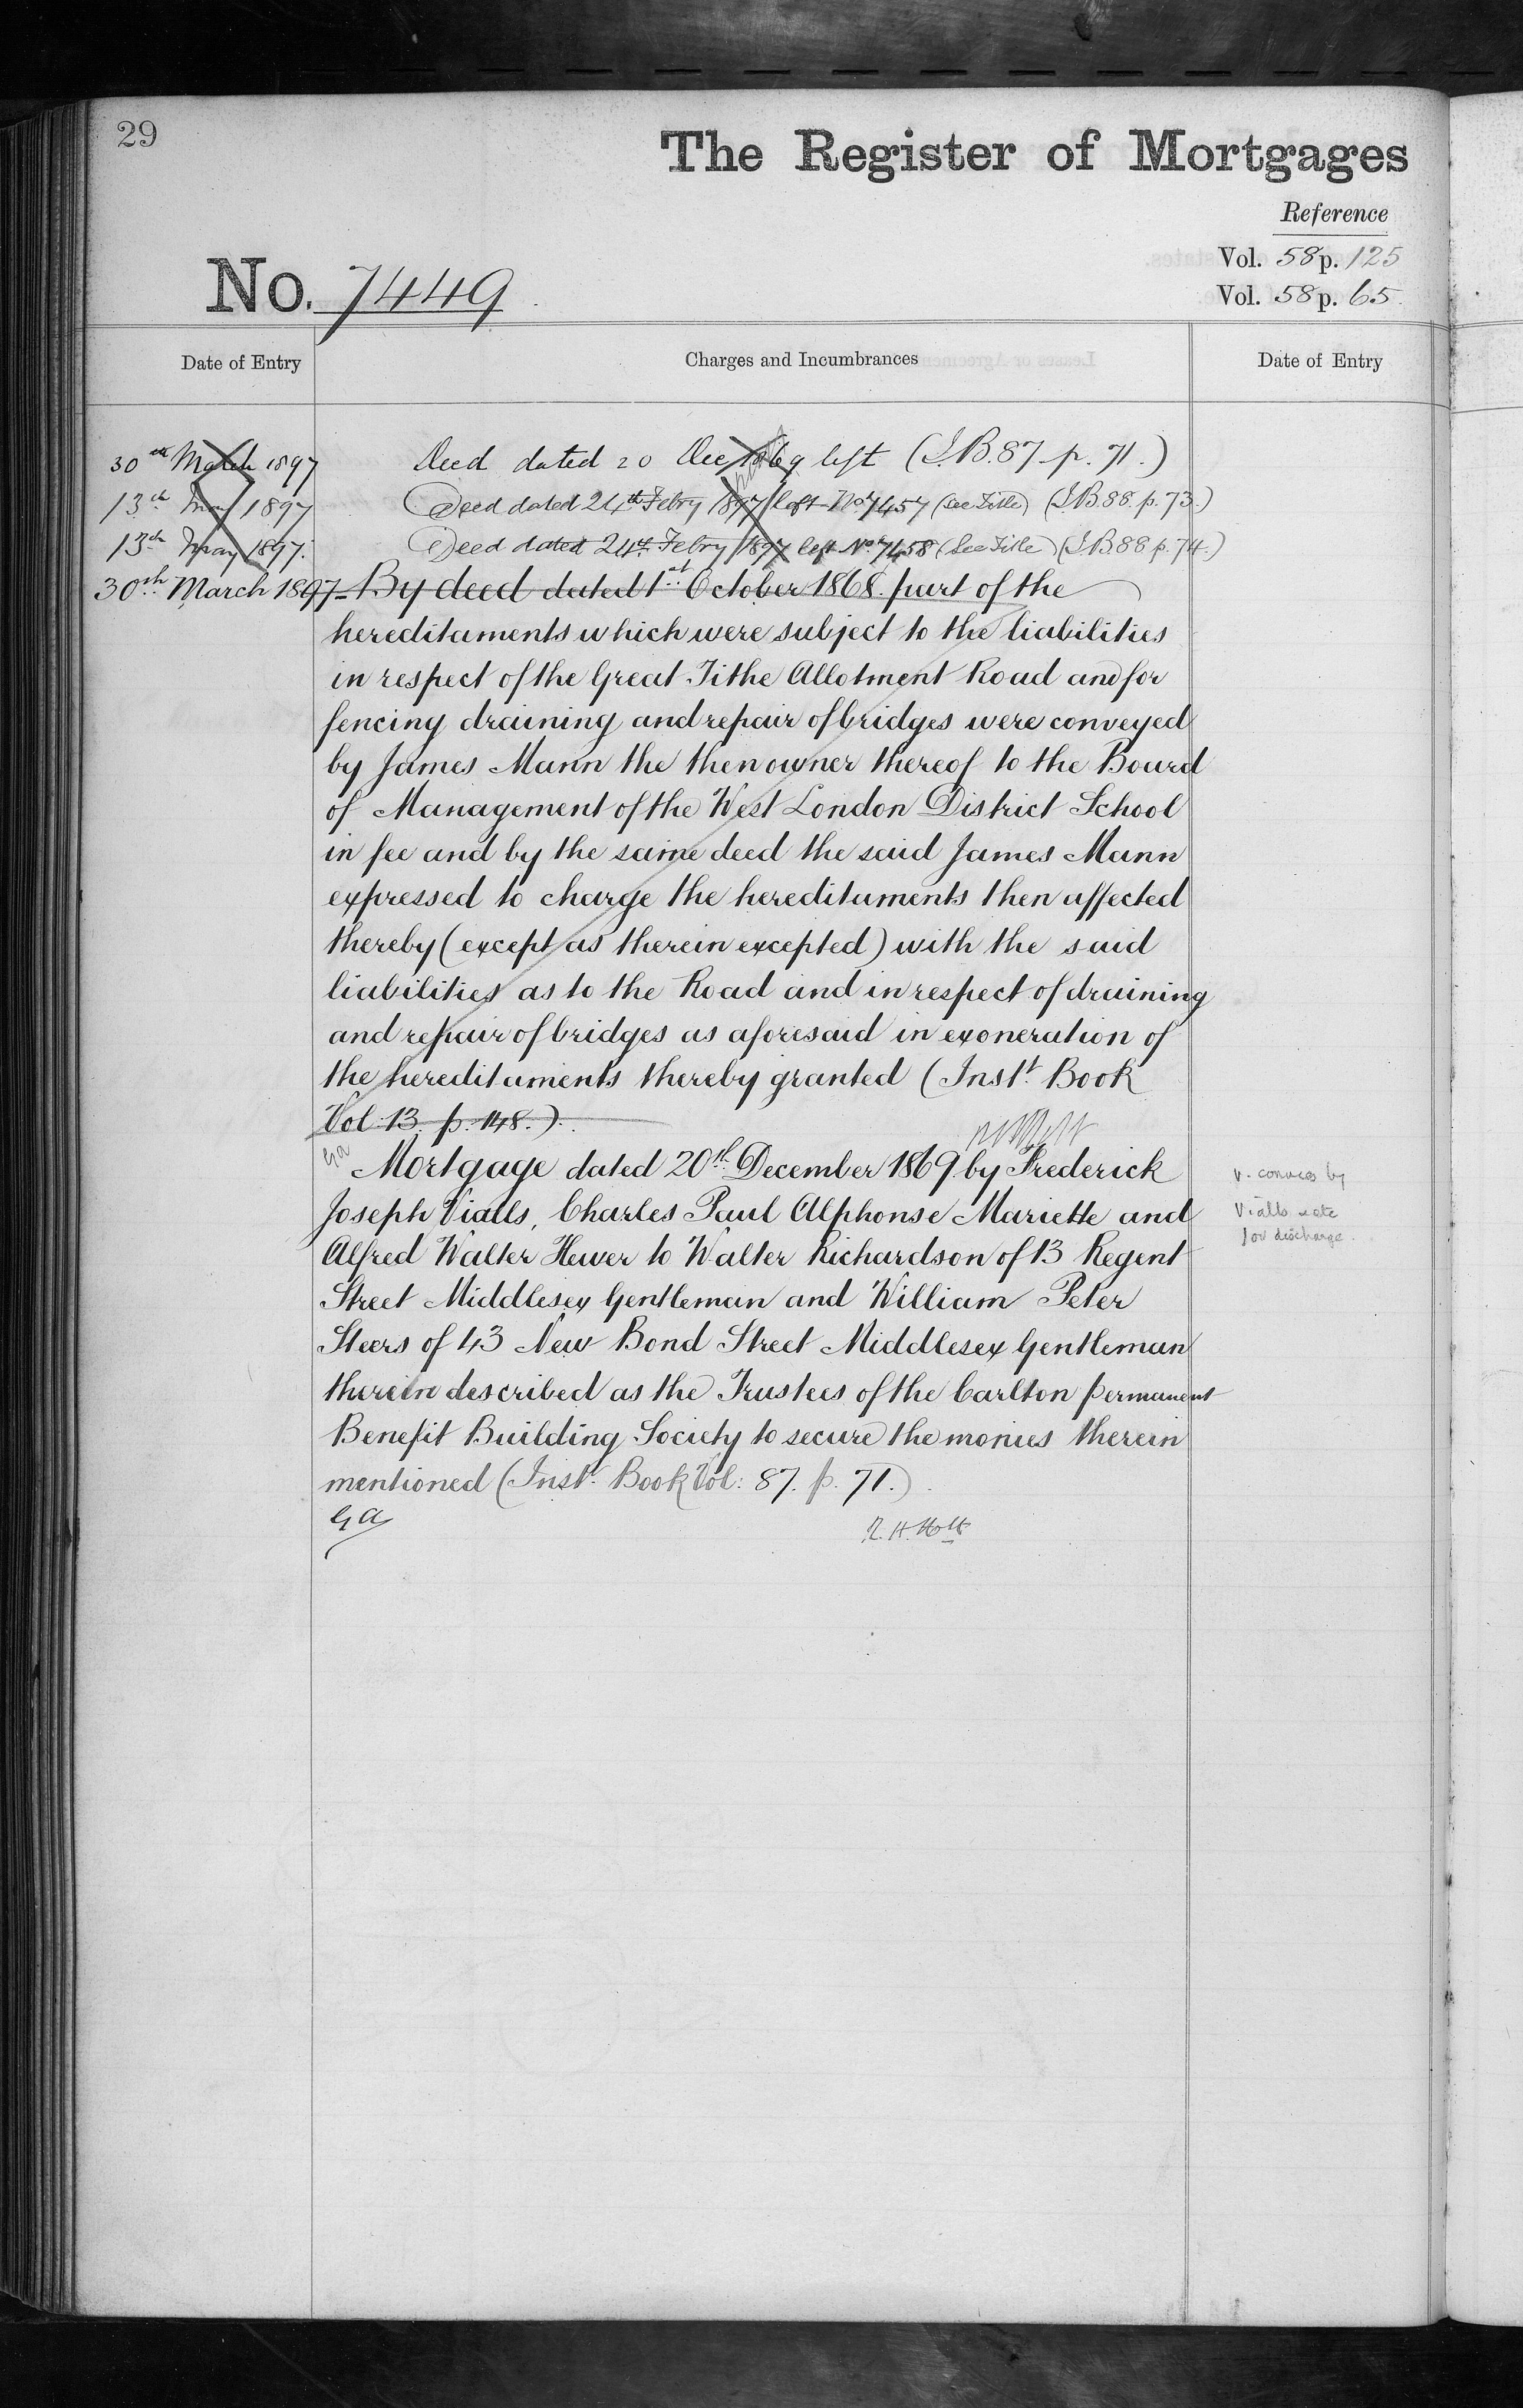 29
The Register of Mortgages
Reference
Vol. 58 p. 125
Vol. 58 p. 65
No. 7449
Date of Entry Charges and Incumbrances Date of Entry
30th March 1897 Deed dated 20 Dec 1869 left (I.B. 87 p. 71.)
13th May 1897 Deed dated 24th Febry 1897 left No. 7457 (see Title) (I.B. 88. p. 73.)
13th May 1897. Deed dated 24th Febry 1897 left No. 7458 (See Title) (I.B. 88 p. 74.)
30th March 1897 By deed dated 1st October 1868 part of the
hereditaments which were subject to the liabilities
in respect of the Great Tithe Allotment Road and for
fencing draining and repair of bridges were conveyed
by James Mann the then owner thereof to the Board
of Management of the West London District School
in fee and by the same deed the said James Mann
expressed to charge the hereditaments then affected
thereby (except as therein excepted) with the said
liabilities as to the Road and in respect of draining
and repair of bridges as aforesaid in exoneration of
the hereditaments thereby granted (Inst. Book
Vol. 13. p. 148.)
GA
Mortgage dated 20th December 1869 by Frederick
Joseph Vialls, Charles Paul Alphonse Mariette and
Alfred Walter Hewer to Walter Richardson of 13 Regent
Street Middlesex Gentleman and William Peter
Steers of 43 New Bond Street Middlesex Gentleman
therein described as the Trustees of the Carlton permanent
Benefit Building Society to secure the monies therein
mentioned (Inst. Book Vol: 87. p. 71.)
GA R. H. Holt
v. by
Vialls
for discharge.